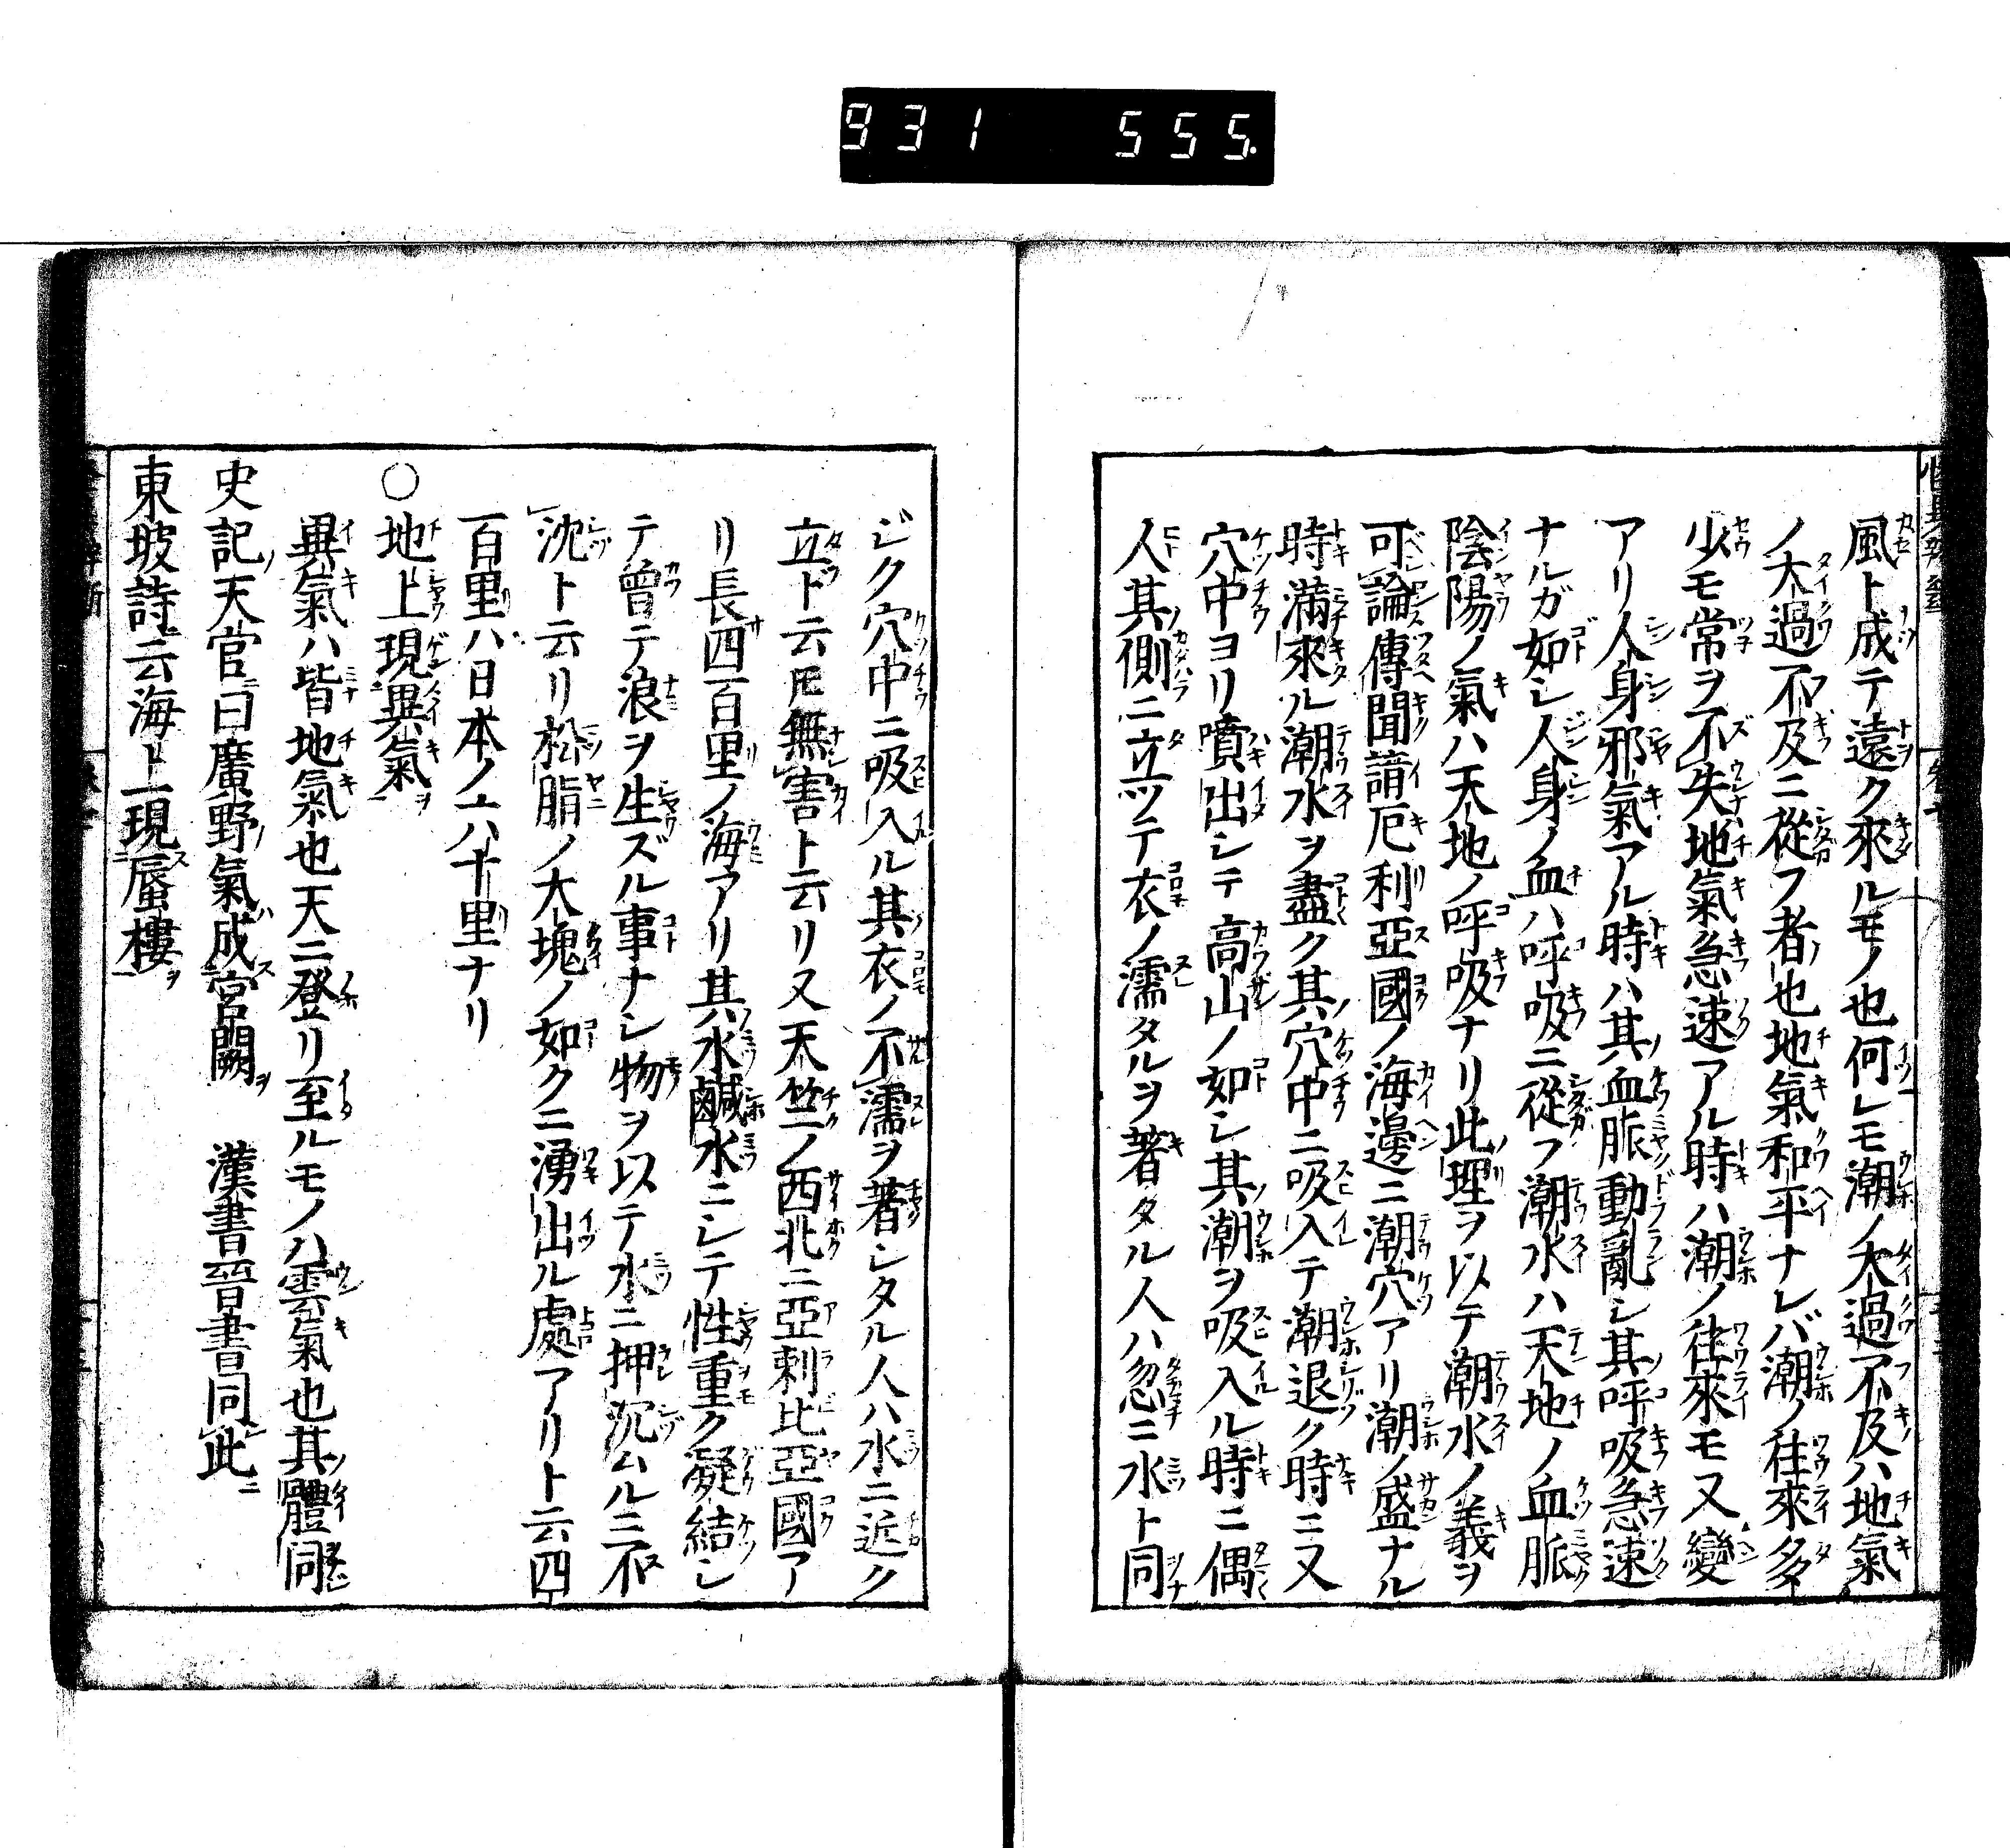 931 555.
風ト成テ遠ク來ルモノ也何レモ潮ノ大過不及ハ地氣
ノ大過不及ニ從フ者也地氣和平ナレバ潮ノ往來多
少モ常ヲ不失地氣急速アル時ハ潮ノ往來モ又變
アリ人身邪氣アル時ハ其血脈動亂シ其呼吸急速
ナルガ如シ人身ノ血ハ呼吸ニ從フ潮水ハ天地ノ血脈
陰陽ノ氣ハ天地ノ呼吸ナリ此理ヲ以テ潮水ノ義ヲ
可論傳聞諳厄利亞國ノ海邊ニ潮穴アリ潮ノ盛ナル
時滿來ル潮水ヲ盡ク其穴中ニ吸入テ潮退ク時ニ又
穴中ヨリ噴出シテ高山ノ如シ其潮ヲ吸入ル時ニ偶
人其側ニ立ツテ衣ノ濡タルヲ著タル人ハ忽ニ水ト同
ジク穴中ニ吸入ル其衣ノ不濡ヲ著シタル人ハ水ニ近ク
立ド云𪜈無害ト云リ又天竺ノ西北ニ亞剌比亞國ア
リ長四百里ノ海アリ其水鹹水ニシテ性重ク凝結シ
テ曾テ浪ヲ生ズル事ナシ物ヲ以テ水ニ押沉ムルニ不
沈ト云リ松脂ノ大塊ノ如クニ湧出ル處アリト云四
百里ハ日本ノ六八十里ナリ
○地上現異氣
異氣ハ皆地氣也天ニ登リ至ルモノハ雲氣也其體同
史記天官曰廣野氣成宮闕 漢書晉書同此
東坡詩云海上現蜃樓